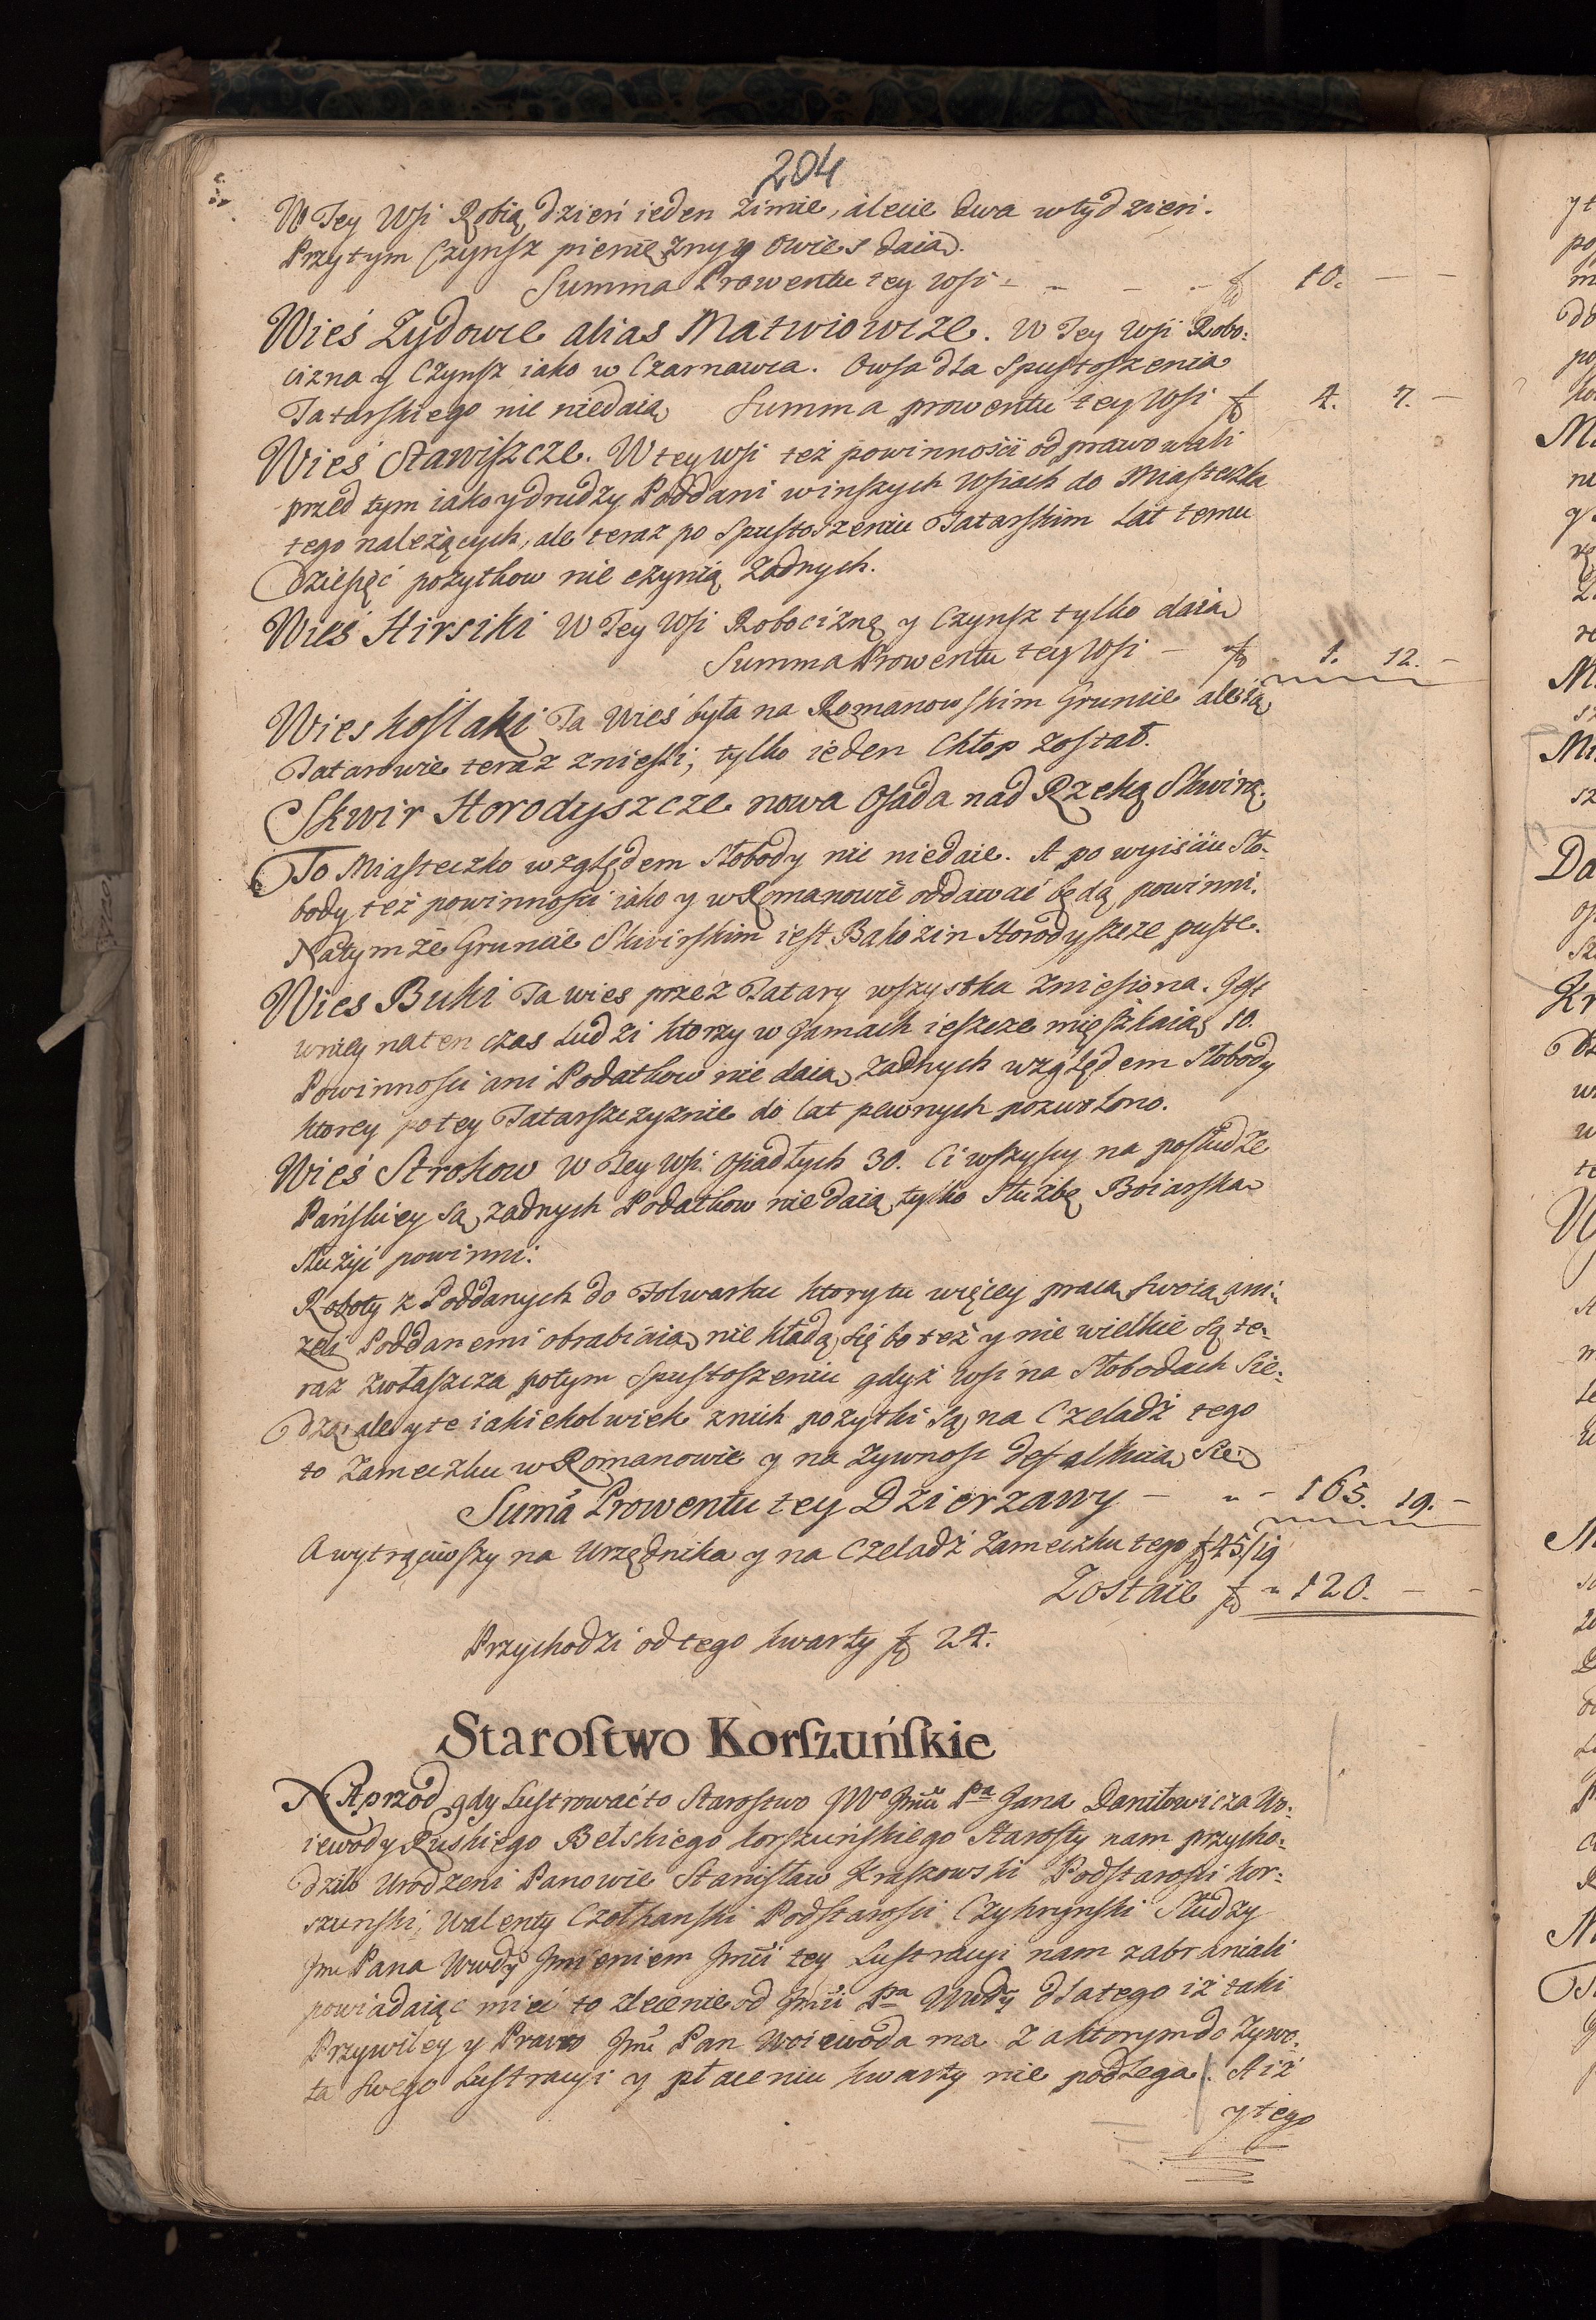 204
W Tey Wsi Robią dzień ieden zimie, a lecie dwa w tydzień.
Przytym Czynsz pieniężny y Owies daią.
Summa Prowentu tey Wsi - - - - f 10. - -
Wieś Żydowce alias Matwiowcze. W Tey Wsi Robo:
cizna y Czynsz iako w Czarnawca. Owsa dla Spustoszenia
Tatarskiego nic niedaią Summa prowentu tey Wsi f 4. 7. -
Wieś Stawiszcze. W tey wsi też powinności odprawowali
przed tym iako y drudzy Poddani w inszych Wsiach do Miasteczka
tego należących, ale teraz po Spustoszeniu Tatarskim Lat temu
Dziesięć pożytkow nie czynią Żadnych.
Wieś Hirsiki W Tey Wsi Robociznę y Czynsz tylko daią
Summa Prowentu tey Wsi - f 1. 12. -
Wies Koślaki Ta Wieś była na Romanowskim Gruncie ale ią
Tatarowie teraz znieśli, tylko ieden Chłop został.
Skwir Horodyszcze nowa Osada nad Rzeką Skwirą.
To Miasteczko względem Słobody nic niedaie. A po wyiściu Sło-
body, też powinności iako y w Romanowie oddawać będą powinni.
Na tymże Gruncie Skwirskim iest Bakozin Horodyszcze puste.
Wies Buki Ta wies przez Tatary wszystka zniesiona. Jest
w niey na ten czas Ludzi ktorzy w Jamach ieszcze mięszkaią 10.
Powinności ani Podatkow nie daią Żadnych względem Słobody
ktorey po tey Tatarszczyznie do lat pewnych pozwolono.
Wieś Strokow W Tey Wsi Osiadłych 30. Ci wszyscy na posłudze
Pańskiey są, żadnych Podatkow nie daią, tylko Służbę Boiarską
służyć powinni.
Roboty z Poddanych do Folwarku ktory tu więcey pracą swoią ani:
żeli Poddanemi obrabiaią nie kładą się bo też y nie wielkie są te-
raz zwłaszcza po tym Spustoszeniu gdyż Wsi na Słobodach Sie:
dzą, ale y te iakiekolwiek z nich pożytki są na Czeladź tego
to Zameczku w Romanowie y na Żywnosc defalkuią Się
Suma Prowentu tey Dzierzawy - " - 165. 19. -
A wytrąciwszy na Urzędnika y na Czeladź Zameczku tego f 45/19
Zostaie f " 120. - -
Przychodzi od tego kwarty f 24.
Starostwo Korszuńskie
Naprzod gdy Lustrować to Starostwo JWo Jmci Pa Jana Daniłowicza Wo:
iewody Ruskiego Bełskiego korszuńskiego Starosty nam przycho:
dziło Urodzeni Panowie Stanisław Kraszowski Podstarosci kor:
szunski, Walenty Czołhanski Podstarosci Czyhryński Słudzy
Jmci Pana Wwdy Jmieniem Jmci tey Lustracyi nam zabraniali
powiadaiąc mieć to zlecenie od Jmci Pa Wwdy dlatego iż taki
Przywiley y Prawo Jmc Pan Woiewoda ma Za ktorym do Żywo-
ta swego Lustracyi y płaceniu kwarty nie podlega. A iż
y tego